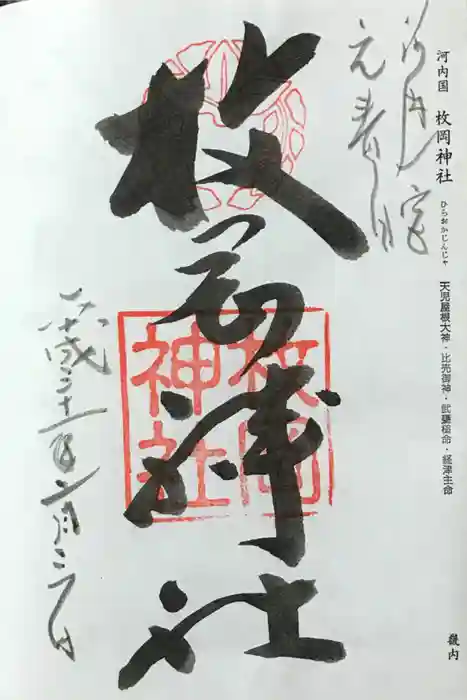 河内国 枚岡神社
ひらおかじんじゃ
天児屋根大神・比売御神・武甕槌命・経津主命
畿内
河内之国
元春日
枚岡神社
枚岡
神社